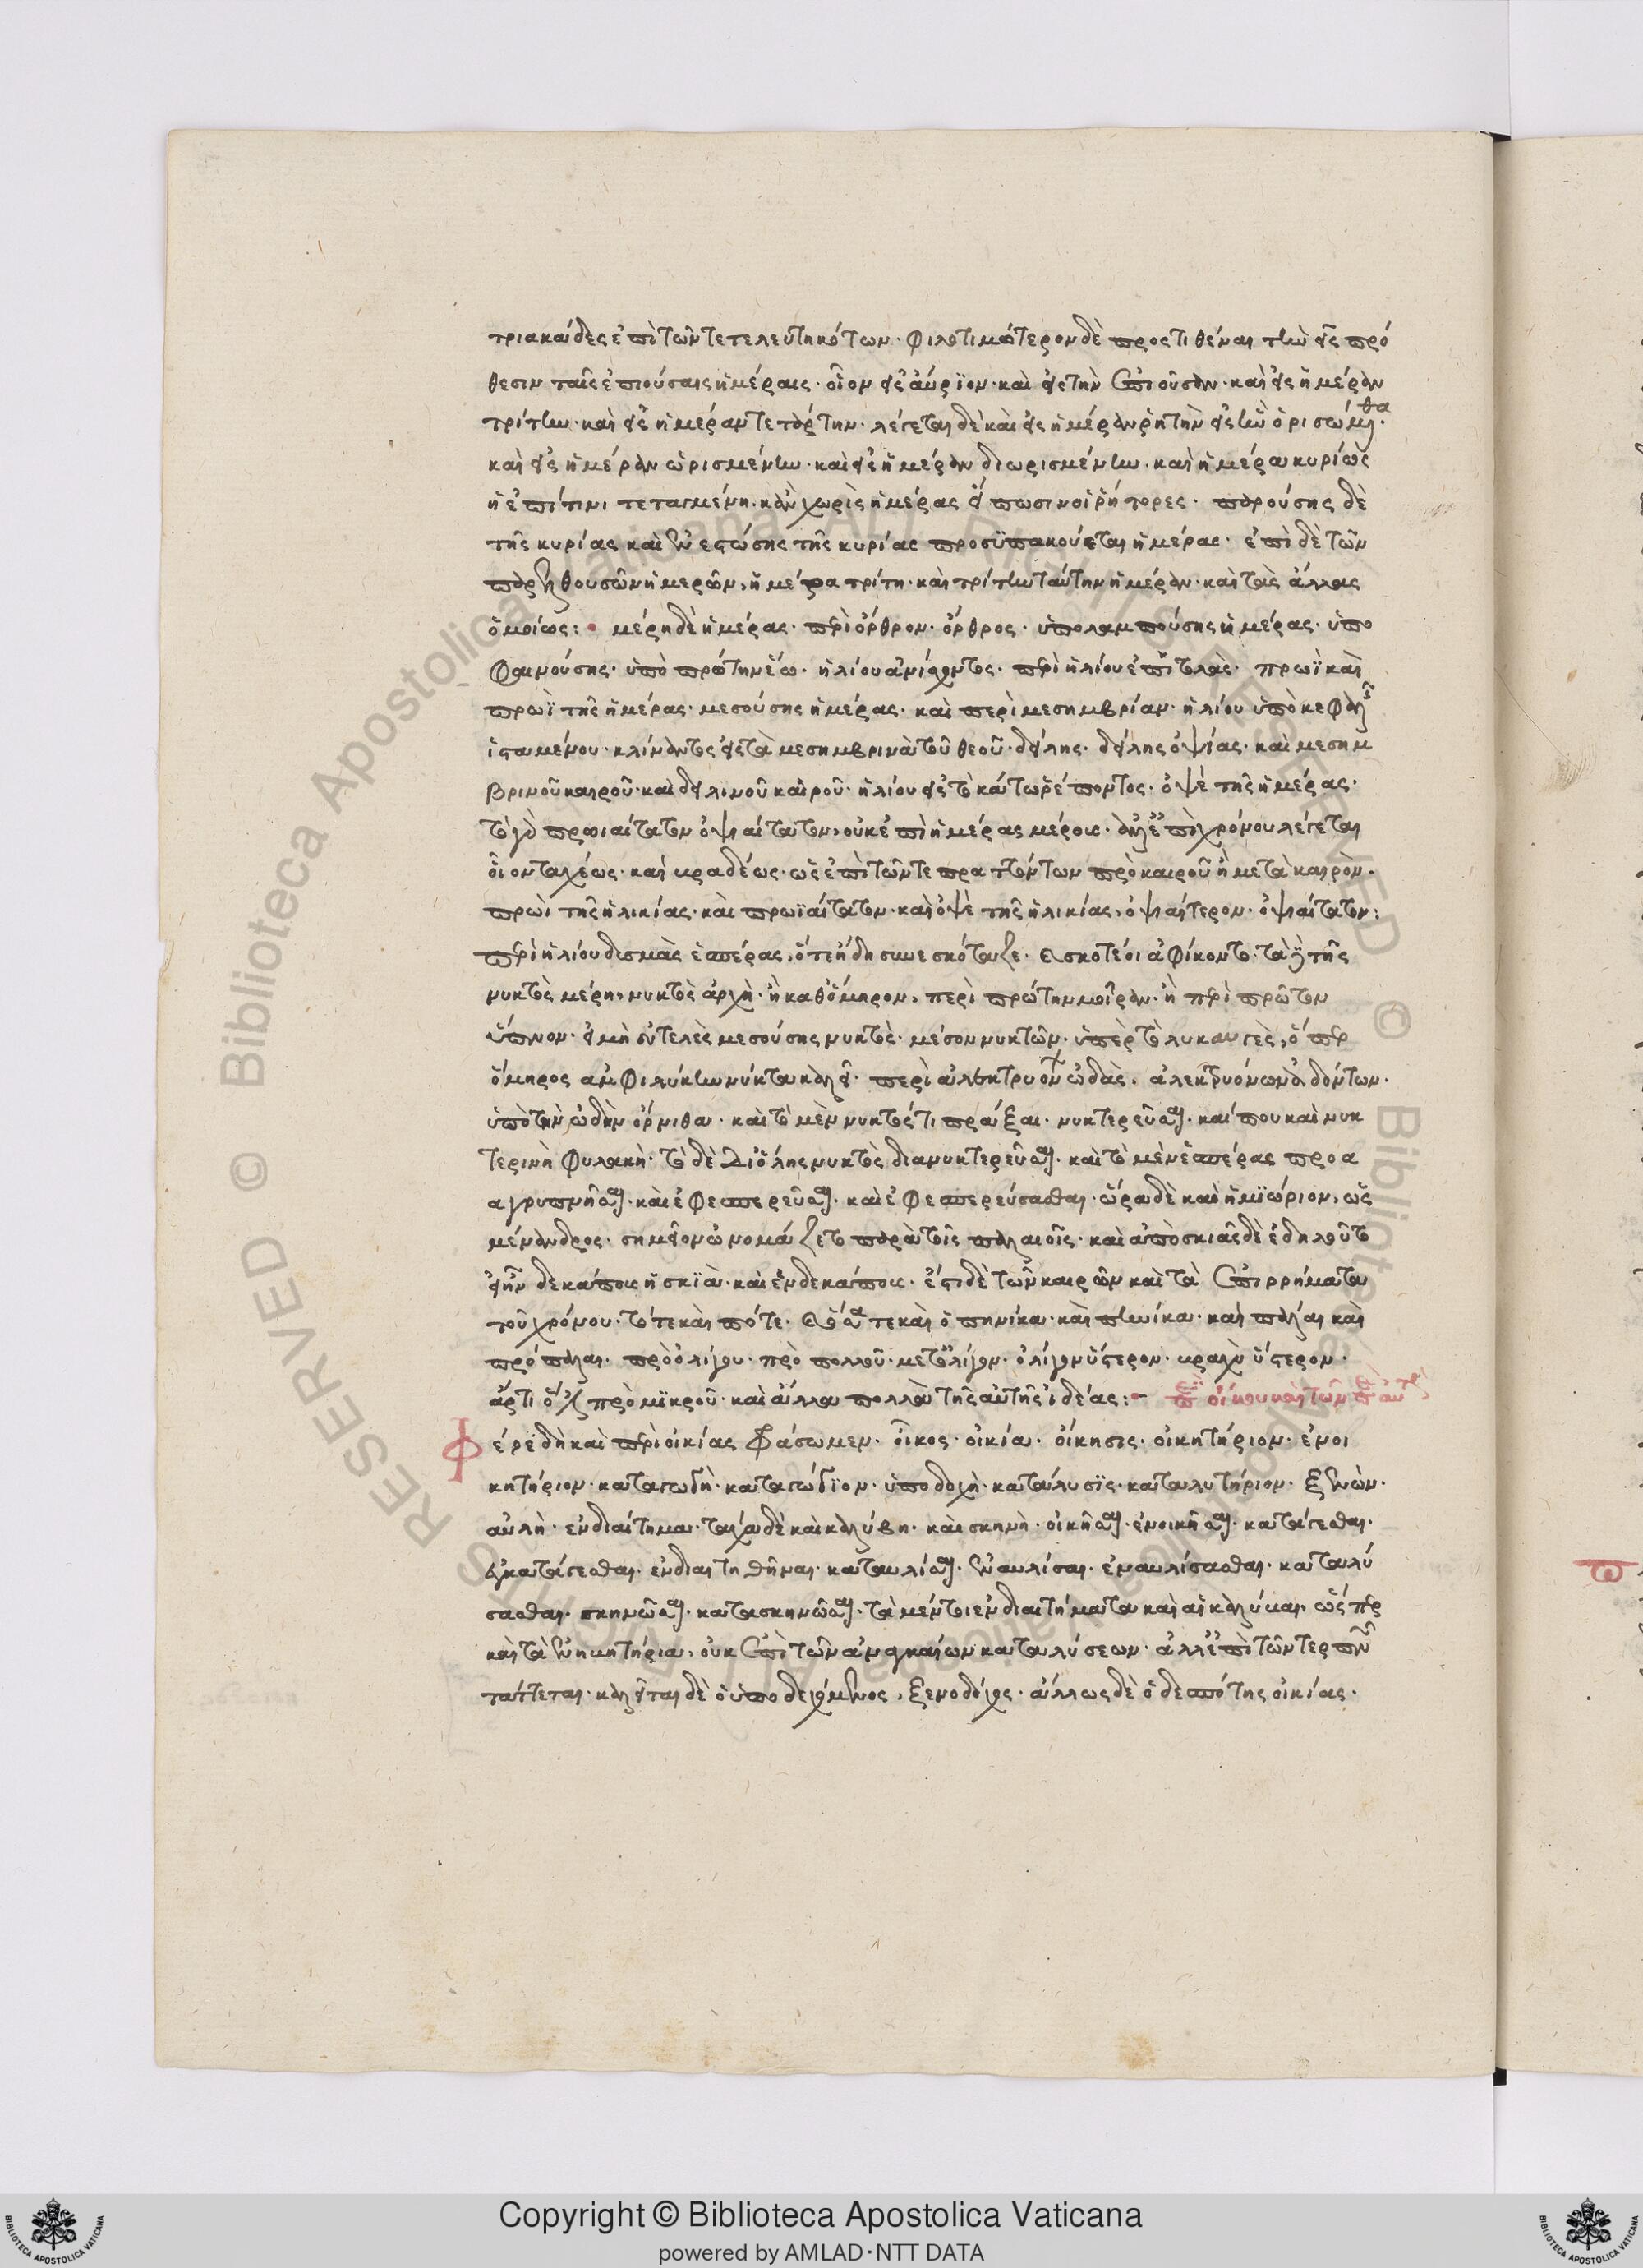 τριακάδες ἐπὶ τῶν τετελευτηκότων· φιλοτιμότερον δὲ προςτιθέναι τὴν εἰς πρό
θεσιν ταῖς ἐπιούσαις ἡμέραις· οἷον εἰς αύριον· καὶ εἰς τὴν ἐπιοῦσαν· καὶ εἰς ἡμέραν
τρίτην· καὶ εἰς ἡμέραν τετάρτην· λέγεται δὲ καὶ εἰς ἡμέραν ῥητὴν εἰς ἣν ὁρισώμεθα·
καὶ εἰς ἡμέραν ὡρισμένην· καὶ εἰς ἡμέραν διωρισμένην· καὶ ἡμέρα κυρίως
ἡ ἐπί τινι τεταγμένη· κἂν χωρὶς ἡμέρας εἴπωσιν οἱ ῥήτορες· παρούσης δὲ
τῆς κυρίας καὶ ἐνεστώσης τῆς κυρίας προσϋπακούεται ἡμέρας· ἐπὶ δὲ τῶν
παρελθουσῶν ἡμερῶν, ἡμέρα τρίτη· καὶ τρίτην ταύτην ἡμέραν· καὶ τὰς ἄλλας
ὁμοίως: μέρη δὲ ἡμέρας· περὶ ὄρθρον· ὄρθρος· ὑπολαμπούσης ἡμέρας· ὑπο
φαινούσης· ὑπὸ πρώτην ἕω· ἡλίου ἀνίσχοντος· περὶ ἡλίου ἐπιτολὰς· πρωῒ καὶ
πρωῒ τῆς ἡμέρας· μεσούσης ἡμέρας· καὶ περὶ μεσημβρίαν· ἡλίου ὑπὸ κεφαλῆς
ἱσταμένου· κλίναντος εἰς τὰ μεσημβρινὰ τοῦ θεοῦ· δείλης· δείλης ὀψίας· καὶ μεσημ
βρινοῦ καιροῦ· καὶ δειλινοῦ καιροῦ· ἡλίου εἰς τὸ κάτω ῥέποντος· ὀψὲ τῆς ἡμέρας·
τὸ γὰρ πρωιαίτατον ὀψιαίτατον, οὐκ ἐπὶ ἡμέρας μέρους· ἀλλ' ἐπὶ χρόνου λέγεται
οἷον ταχέως· καὶ βραδέως· ὡς ἐπὶ τῶν τε πραττόντων πρὸ καιροῦ ἢ μετὰ καιρὸν·
πρωὶ τῆς ἡλικίας· καὶ πρωϊαίτατον· καὶ ὀψὲ τῆς ἡλικίας, ὀψιαίτερον· ὀψιαίτατον:
περὶ ἡλίου δυσμὰς ἑσπέρας, ὅτε ἤδη συνεσκόταζε· σκοτεῖοι ἀφίκοντο· τὰ δὲ τῆς
νυκτὸς μέρη, νυκτὸς ἀρχὴ· ἢ καθ' ὅμηρον, περὶ πρώτην μοῖραν· ἢ περὶ πρῶτον
ὕπνον· εἰ μὴ εὐτελὲς μεσούσης νυκτὸς· μέσον νυκτῶν· ὑπὲρ τὸ λυκαυγὲς, ὅπερ
ὅμηρος ἀμφιλύκην νύκτα καλεῖ· περὶ ἀλεκτρυόνων ὠδὰς· ἀλεκτρυόνων ᾀδόντων·
ὑπὸ τὴν ὠδὴν ὄρνιθα· καὶ τὸ μὲν νυκτός τι πράξαι· νυκτερεῦσαι· καί που καὶ νυκ
τερινὴ φυλακὴ· τὸ δὲ δι' ὅλης νυκτὸς διανυκτερεῦσαι· καὶ τὸ μὲν ἑσπέρας προα
αγρυπνῆσαι· καὶ ἐφεσπερεῦσαι· καὶ ἐφεσπερεύσασθαι· ὥρα δὲ καὶ ἡμιώριον, ὡς
μένανδρος· σημεῖον ὠνομάζετο παρὰ τοῖς παλαιοῖς· καὶ ἀπὸ σκιᾶς δὲ ἐδηλοῦτο
εἰ ἦν δεκάπους ἡ σκϊὰ· καὶ ἑνδεκάπους· ἔστι δὲ τῶν καιρῶν καὶ τὰ ἐπιρρήματα
τοῦ χρόνου· τότε καὶ πότε· ὅτε καὶ ὁπηνίκα· καὶ πηνίκα· καὶ πάλαι καὶ
πρόπαλαι· πρὸ ὀλίγου· πρὸ πολλοῦ· μετ' ὀλίγον· ὀλίγον ὕστερον· βραχὺ ὕστερον·
ἄρτι πρὸ μϊκροῦ· καὶ ἄλλα πολλὰ τῆς αὐτῆς ἰδέας:- περὶ οἴκου καὶ τῶν περὶ αὐτὸν
φέρε δὴ καὶ περὶ οἰκίας φράσωμεν· οἶκος· οἰκία· οἴκησις· οἰκητήριον· ἐνοι
κητήριον· καταγωγὴ· καταγώγϊον· ὑποδοχὴ· κατάλυσϊς· καταλυτήριον· ξενὼν·
αὐλὴ· ἐνδιαίτημα· τάχα δὲ καὶ καλύβη· καὶ σκηνὴ· οἰκῆσαι· ἐνοικῆσαι· κατάγεσθαι·
ἐγκατάγεσθαι· ἐνδιαιτηθῆναι· καταυλίσαι· ἐναυλίσαι· ἐναυλίσασθαι· καταλύ
σασθαι· σκηνῶσαι· κατασκηνῶσαι· τὰ μέντοι ἐνδιαιτήματα καὶ αἱ καλύβαι ὥσπερ
καὶ τὰ ἐνηβητήρια, οὐκ ἐπὶ τῶν ἀναγκαίων καταλύσεων· ἀλλ' ἐπὶ τῶν τερπνῶν
τάττεται· καλεῖται δὲ ὁ ὑποδεχόμενος, ξενοδόχος· ἄλλως δὲ ὁ δεσπότης οἰκίας·
Copyright © Biblioteca Apostolica Vaticana
powered by AMLAD·NTT DATA